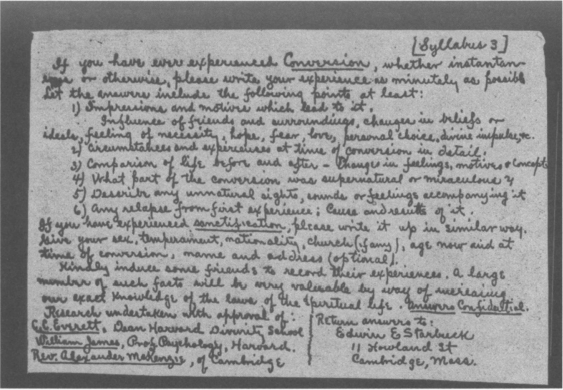 [Syllabus 3]
If you have ever experienced Conversion, whether instantan-
eous or otherwise, please write your experience as minutely as possible
Let the answers include the following points at least:
1) Impressions and motives which lead to it.
Influence of friends and surroundings, changes in beliefs or
ideals, feeling of necessity, hope, fear, love, personal choice, divine impulse, &c.
2) Circumstances and experiences at time of conversion in detail.
3) Comparison of life before and after - Change in feelings, motives & Concepts
4) What part of the conversion was supernatural or miraculous?
5) Describe any unnatural sights, sounds or feelings accompanying it
6) Any relapse from first experience; Cause and results of it.
If you have experienced sanctification, please write it up in similar way.
Give your sex, temperament, nationality, church (if any), age now and at
time of conversion, name and address (optional).
Kindly induce some friends to record their experiences. A large
number of such facts will be very valuable by way of increasing
our exact knowledge of the laws of the spiritual life. Answers Confidential.
Research undertaken with approval of:
C.C. Everett, Dean Harvard Divinity School
William James, Prof. Psychology, Harvard.
Rev. Alexander McKenzie, of Cambridge
Return answers to:
Edwin E Starbuck
11 Howland St
Cambridge, Mass.